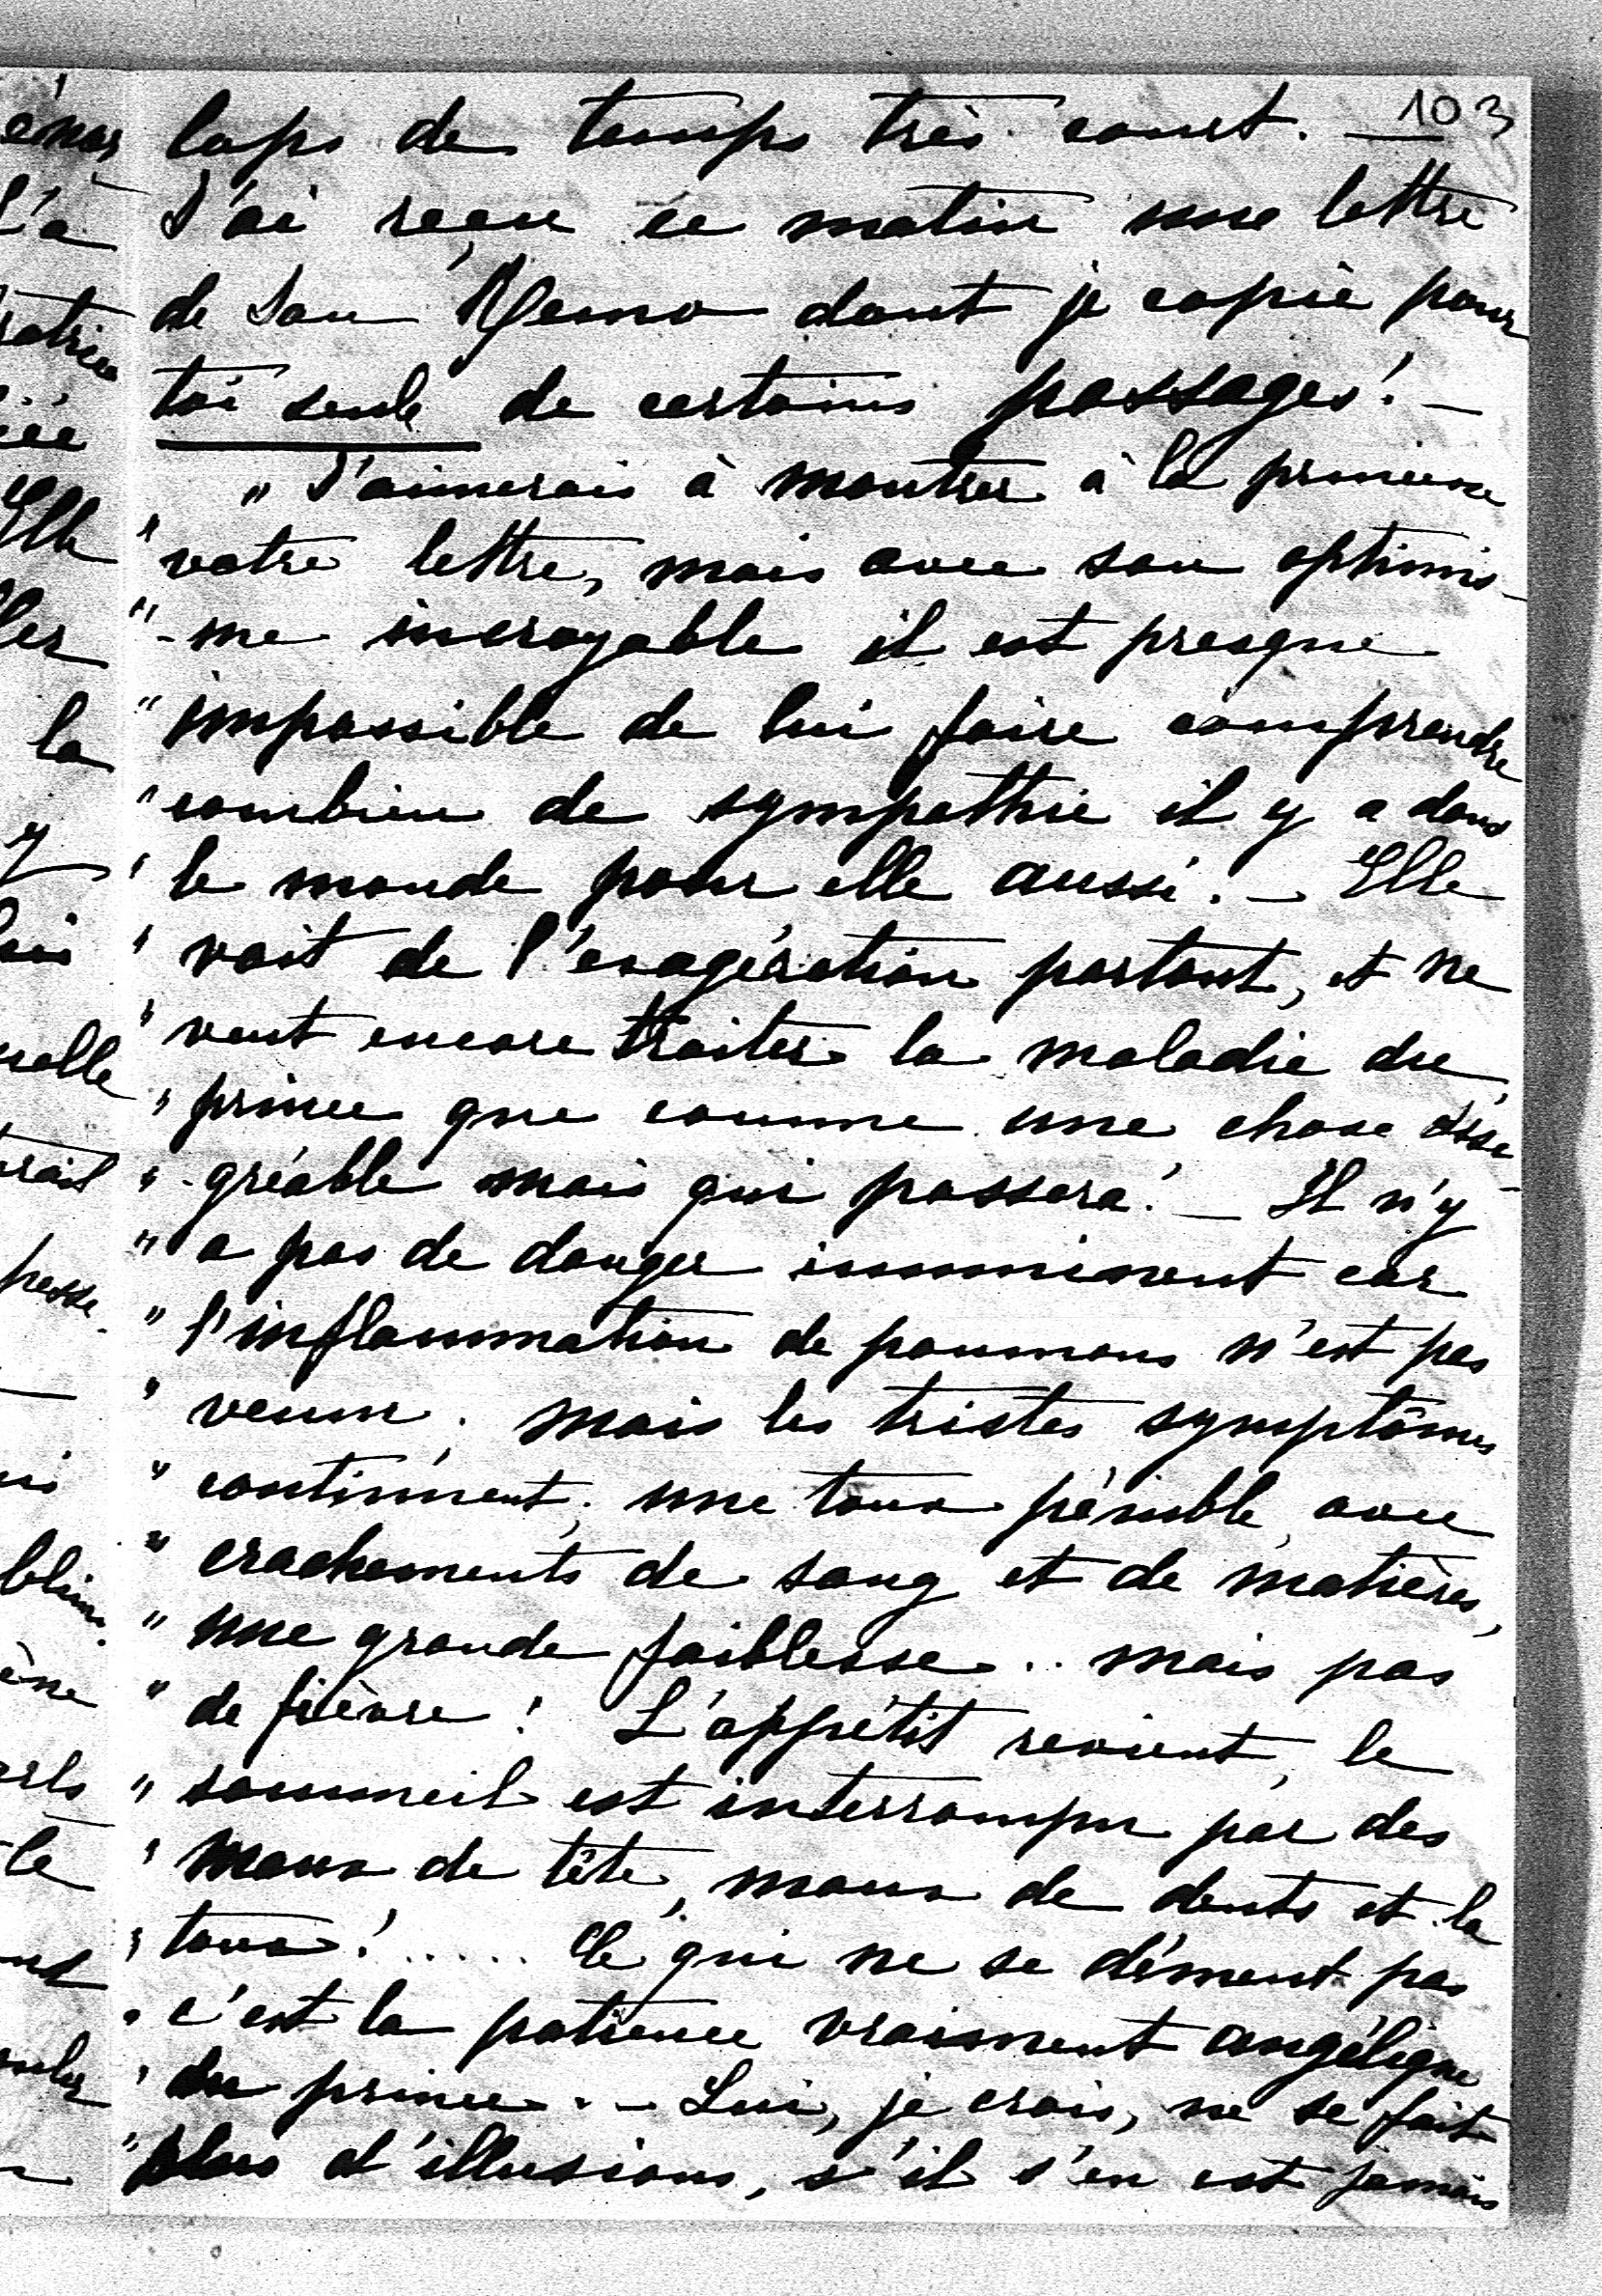 103
laps de temps très court. —
J'ai reçu ce matin une lettre
de San Remo dont je copie pour
toi seule de certains passages! —
„ J'aimerais à montrer à la princesse
" votre lettre, mais avec son optimis-
" -me incroyable il est presque
" impossible de lui faire comprendre
" combien de sympathie il y a dans
" le monde pour elle aussi. — Elle
" voit de l'exagération partout, et ne
" veut encore traiter la maladie du
" prince que comme une chose désa-
" -gréable mais qui passera! — Il n'y
" a pas de danger imminent car
" l'inflammation de poumons n'est pas
" venue; mais les tristes symptômes
" continuent; une toux pénible avec
" crachements de sang et de matières,
" une grande faiblesse .. mais pas
" de fièvre! L'appétit revient, le
" sommeil est interrompu par des
" maux de tête, maux de dents et la
" toux! ..... Ce qui ne se dément pas
" c'est la patience vraiment angélique
" du prince. — Lui, je crois, ne se fait
" plus d'illusions, s'il s'en est jamais